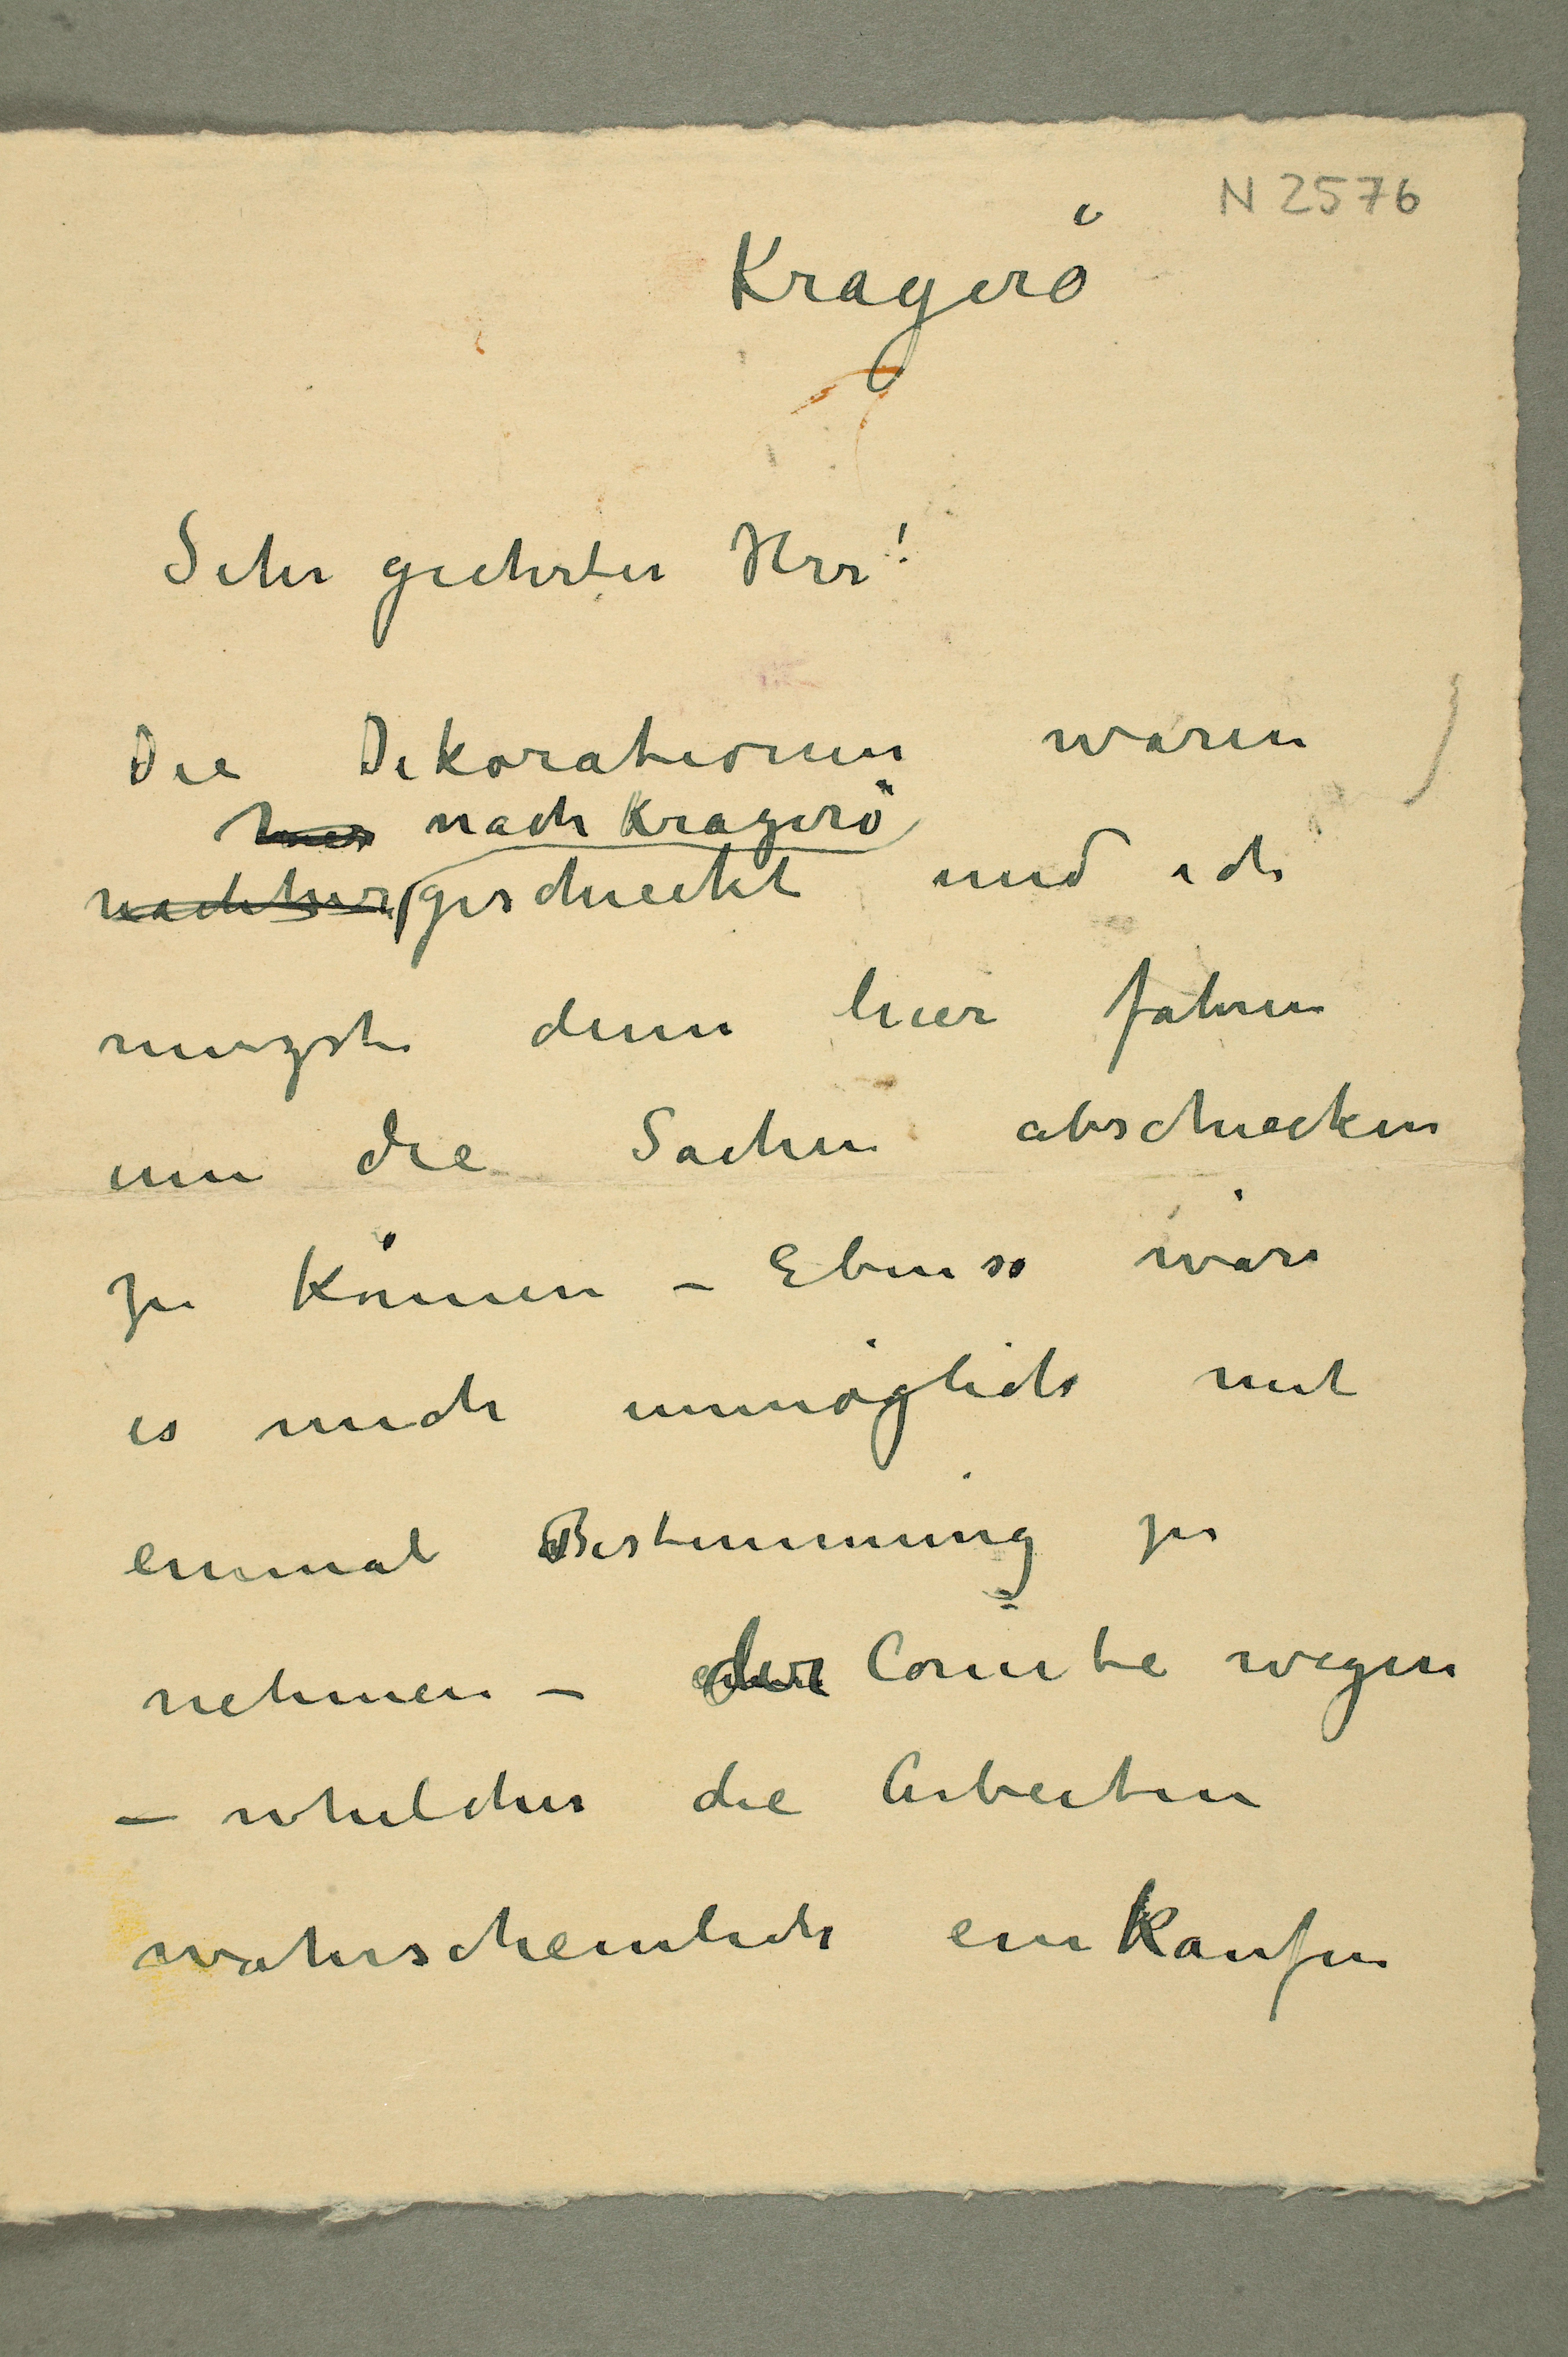 N 2576
Kragerö
Sehr geehrter Herr!
Die Dekorationen waren
hier nach Kragerö
nach hier geschieckt und ich
muszte denn hier fahren
um die Sachen abschiecken
zu können – Ebenso wär
es mich unmöglich mit
einmal Bestimmung zu
nehmen – der Comite wegen
– whelcher die Arbeiten
wahrscheinlich einkaufen